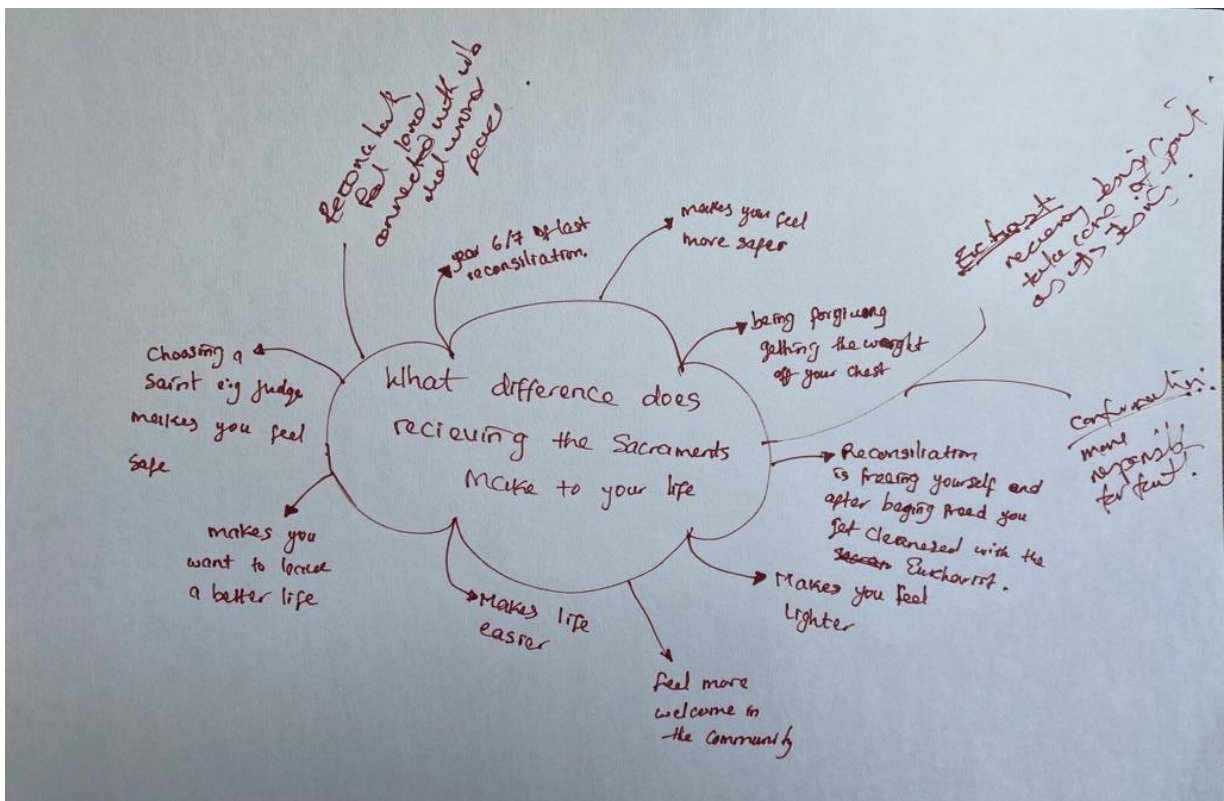 What difference does
recieving the Sacraments
Make to your life
feel loved
connected with
year 6/7 of last
reconsiliation.
makes you feel
more safer
being forgiving
getting the weight
off your chest
Eucharist
recieving
take care of
confirmation:
more
responsibl
for
Reconsiliation
is freeing yourself and
after beging freed you
get cleanezed with the
Eucharist.
Makes you feel
lighter
feel more
welcome in
the community
Makes life
easier
makes you
want to
a better life
Choosing a
Saint e.g Judge
makes you feel
safe